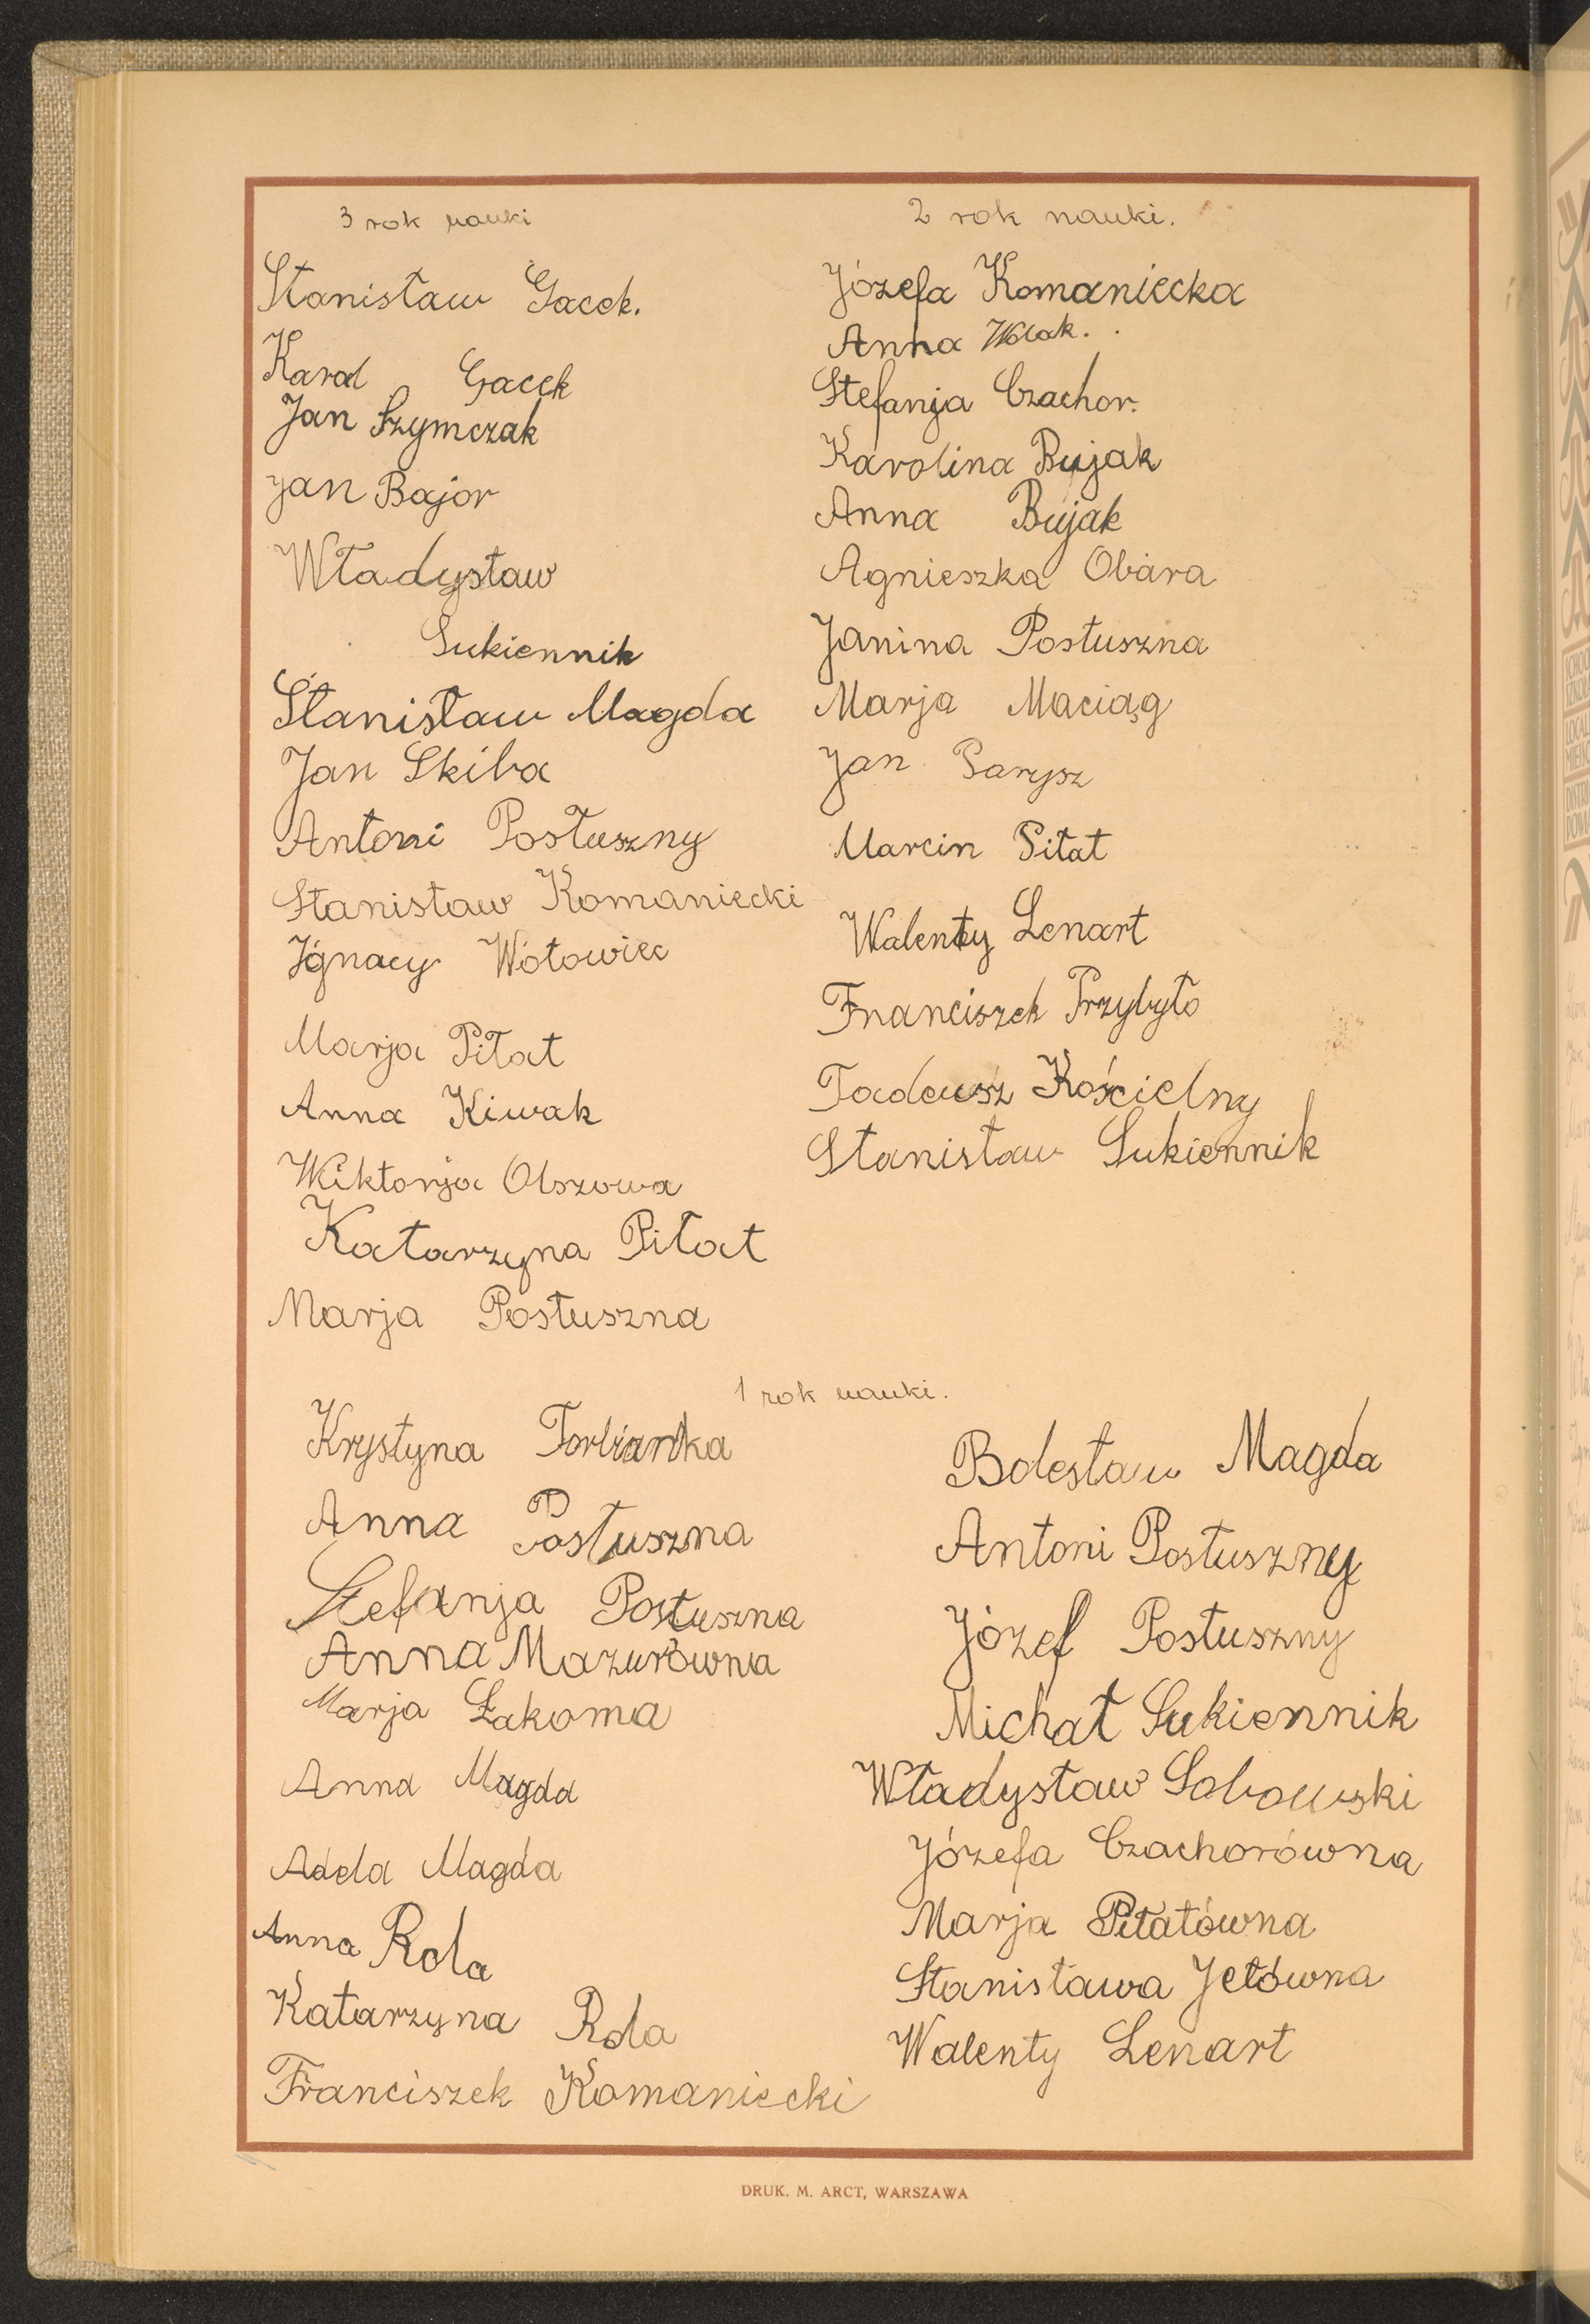 3 rok nauki
Stanisław Gacek.
Karol Gacek
Jan Szymczak
Jan Bajor
Władysław
Sukiennik
Stanisław Magda
Jan Skiba
Antoni Posłuszny
Stanisław Komaniecki
Ignacy Wołowiec
Marja Piłat
Anna Kiwak
Wiktorja Olszowa
Katarzyna Piłat
Marja Posłuszna
2 rok nauki.
Józefa Komaniecka
Anna Wolak.
Stefanja Czachor.
Karolina Bujak
Anna Bujak
Agnieszka Obara
Janina Posłuszna
Marja Maciąg
Jan Parysz
Marcin Piłat
Walenty Lenart
Franciszek Przybyło
Tadeusz Kościelny
Stanisław Sukiennik
1 rok nauki.
Krystyna
Anna Posłuszna
Stefanja Posłuszna
Anna Mazurówna
Marja Łakoma
Anna Magda
Adela Magda
Anna Rola
Katarzyna Rola
Franciszek Komaniecki
Bolesław Magda
Antoni Posłuszny
Józef Posłuszny
Michał Sukiennik
Władysław Sobowski
Józefa Czachorówna
Marja Piłatówna
Stanisława Jełówna
Walenty Lenart
DRUK. M. ARCT, WARSZAWA